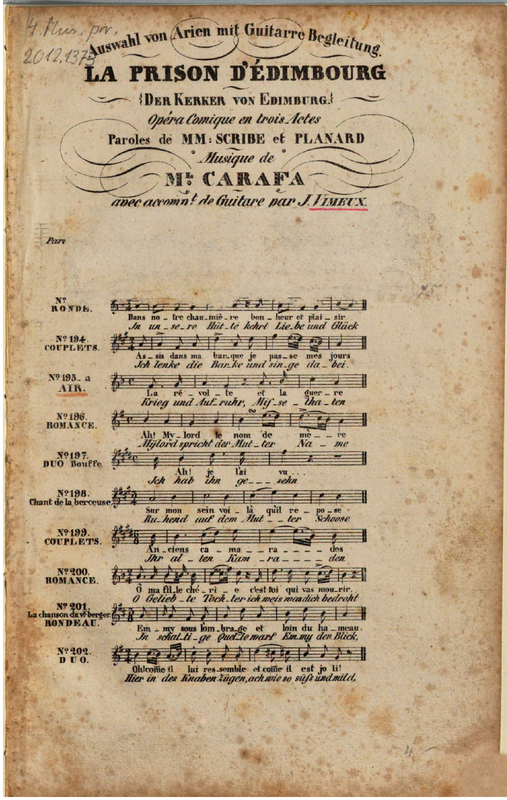 4. Mus. pr.
2012.1373
Auswahl von Arien mit Guitarre Begleitung.
LA PRISON D'ÉDIMBOURG
{DER KERKER VON EDIMBURG.}
Opéra Comique en trois Actes
Paroles de MM: SCRIBE et PLANARD
Musique de
Mr. CARAFA
avec accompnt. de Guitare par J. VIMEUX.
Par
No
RONDE.
Dans no_tre chau_miè_re bon_heur et plai_sir
In un_se_re Hüt_te kehrt Lie_be und Glück
No 194.
COUPLETS.
As_sis dans ma bar_que je pas_se mes jours
Ich lenke die Bar_ke und sin_ge da_bei.
No 195_a
AIR.
La ré_vol_te et la guer_re
Krieg und Auf_ruhr, Mis_se_tha_ten
No 196.
ROMANCE.
Ah! My_lord le nom de mè_re
Mylord spricht der Mut_ter Na_me
No 197.
DUO Bouffe
Ah! je l'ai vu....
Ich hab ihn ge___sehn
No 198.
Chant de la berceuse.
Sur mon sein voi_là qu'il re_po_se
Ru_hend auf dem Mut__ter Schoose
No 199.
COUPLETS.
An_ciens ca_ma_ra___des
Ihr al_ten Kam_ra____den
No 200.
ROMANCE.
O ma fil_le ché_ri_e c'est toi qui vas mou_rir.
O Gelieb_te Toch_ter ich weis was dich bedroht
No 201.
La chanson du vt berger
RONDEAU.
Em_my sous l'om_bra_ge et loin du ha_meau.
In schat_ti_ge Quel_le warf Em_my den Blick,
No 202.
DUO.
Oh! come il lui res_semble et come il est jo li!
Hier in des Knaben Zügen, ach wie so süfs und mild,